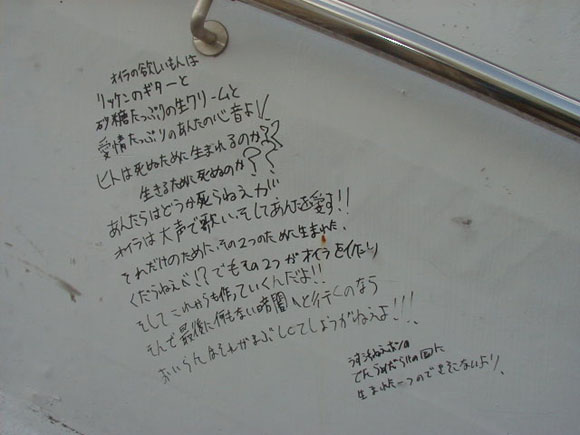 オイラの欲しいもんは
リッケンのギターと
砂糖たっぷりの生クリームと
愛情たっぷりのあんたの心音よ!
ヒトは死ぬために生まれるのか??
生きるために死ぬのか??
あんたらはどうか知らねえが
オイラは大声で歌い、そしてあんたを愛す!!
それだけのために、その2つのために生まれた、
くだらねえべ!?でもその2つがオイラを作り
そしてこれからも作っていくんだよ!!
そんで最後に何もない暗闇へと行くのなら
おいらんはそれがまぶしくてしょうがねえよ!!!
でたらめだらけの国に
生まれた一つのでき